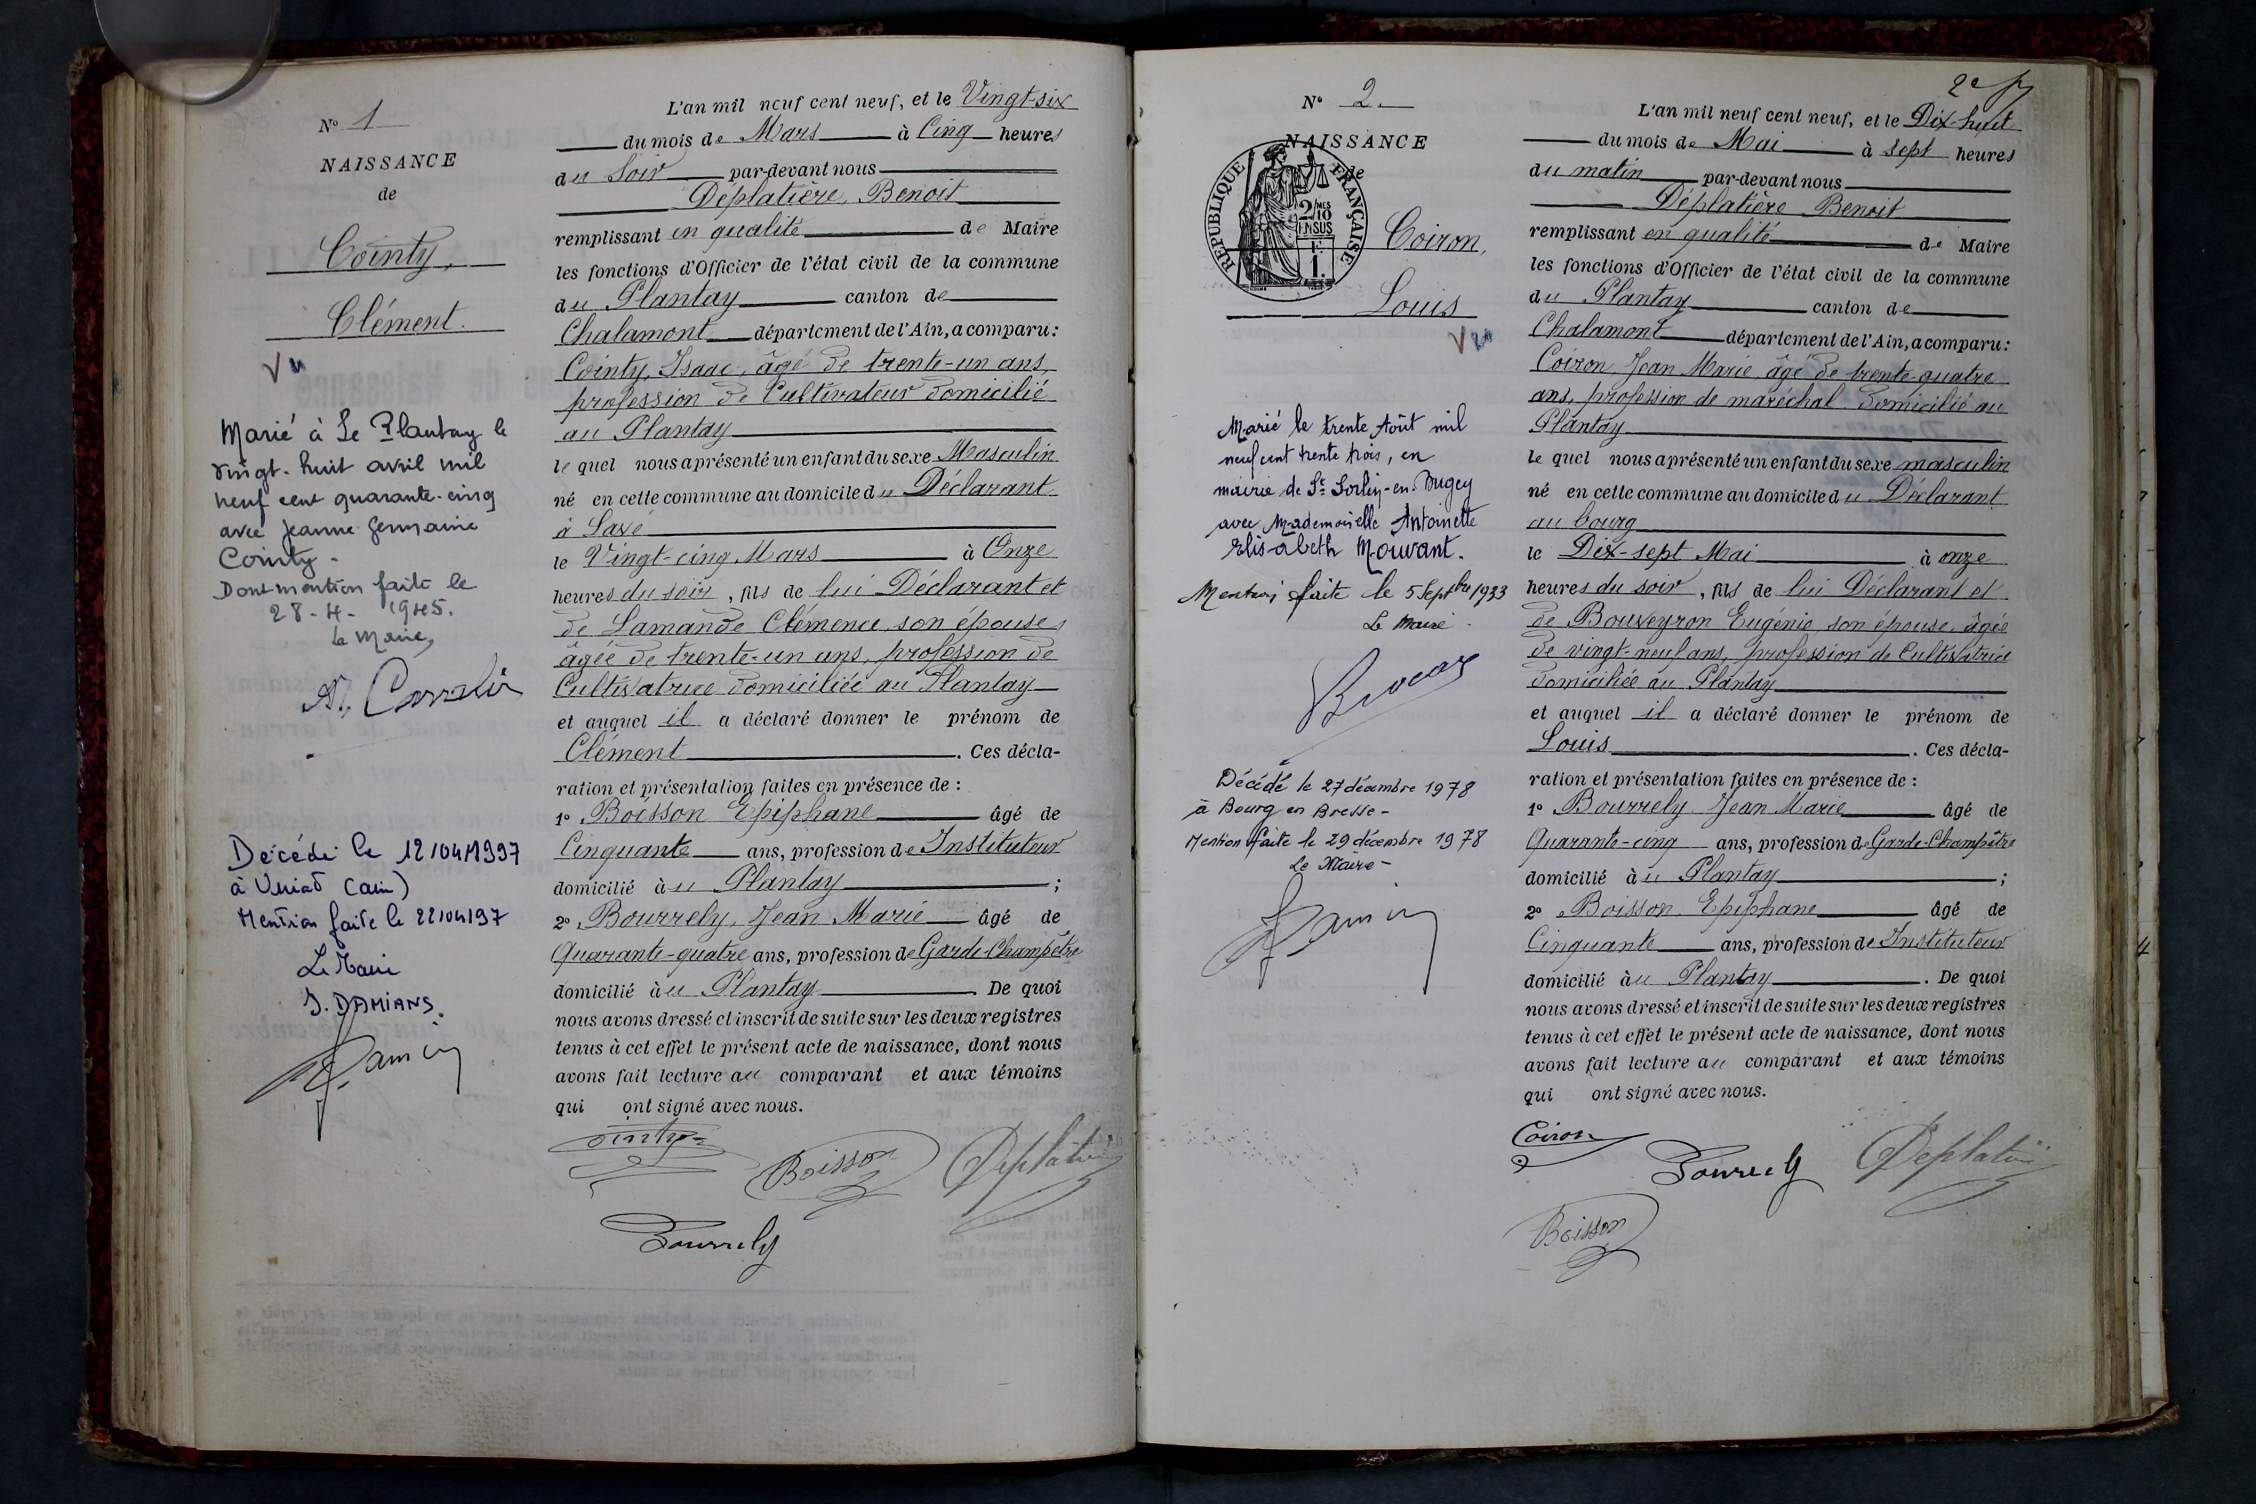 N° 1
NAISSANCE
de
Cointy,
Clément.
Marié à Le Plantay le
vingt-huit avril mil
neuf cent quarante-cinq
avec Jeanne Germaine
Cointy -
Dont mention faite le
28-4-1945.
Le Maire,
Décédé le 12/04/1997
à Viriat (ain)
Mention faite le 22/04/97
Le Maire
J. DAMIANS.
L'an mil neuf cent neuf, et le Vingt-six
du mois de Mars à Cinq heures
du Soir par-devant nous
Déplatière, Benoit
remplissant en qualité de Maire
les fonctions d'Officier de l'état civil de la commune
du Plantay canton de
Chalamont département de l'Ain, a comparu:
Cointy, Isaac, âgé de trente-un ans,
profession de Cultivateur domicilié
au Plantay
le quel nous a présenté un enfant du sexe Masculin
né en cette commune au domicile du Déclarant
à Saxe
le Vingt-cinq Mars à Onze
heures du soir, fils de lui Déclarant et
de Lamande Clémence, son épouse,
âgée de trente-un ans, profession de
Cultivatrice domiciliée au Plantay
et auquel il a déclaré donner le prénom de
Clément. Ces décla-
ration et présentation faites en présence de :
1° Boisson Epiphane âgé de
Cinquante ans, profession de Instituteur
domicilié au Plantay ;
2° Bourrely, Jean Marie âgé de
Quarante-quatre ans, profession de Garde-Champêtre
domicilié au Plantay. De quoi
nous avons dressé et inscrit de suite sur les deux registres
tenus à cet effet le présent acte de naissance, dont nous
avons fait lecture au comparant et aux témoins
qui ont signé avec nous.
Cointy
Boisson
Déplatière
Bourrely
N° 2.
NAISSANCE
de
RÉPUBLIQUE FRANÇAISE
2/MES
10
EN SUS
F.
1.
Coiron,
Louis
Marié le trente Août mil
neuf cent trente trois, en
mairie de St Sorlin-en-Bugey
avec Mademoiselle Antoinette
Elisabeth Mouvant.
Mention faite le 5 Septbre 1933
Le Maire
Décédé le 27 décembre 1978
à Bourg en Bresse -
Mention faite le 29 décembre 1978
Le Maire -
2e
L'an mil neuf cent neuf, et le Dix-huit
du mois de Mai à sept heures
du matin par-devant nous
Déplatière Benoit
remplissant en qualité de Maire
les fonctions d'Officier de l'état civil de la commune
du Plantay canton de
Chalamont département de l'Ain, a comparu:
Coiron Jean Marie âgé de trente-quatre
ans, profession de maréchal domicilié au
Plantay
le quel nous a présenté un enfant du sexe masculin
né en cette commune au domicile du Déclarant
au bourg
le Dix-sept Mai à onze
heures du soir, fils de lui Déclarant et
de Bouveyron Eugénie, son épouse, âgée
de vingt-neuf ans, profession de Cultivatrice
domiciliée au Plantay
et auquel il a déclaré donner le prénom de
Louis. Ces décla-
ration et présentation faites en présence de :
1° Bourrely Jean Marie âgé de
Quarante-cinq ans, profession de Garde-Champêtre
domicilié au Plantay ;
2° Boisson, Epiphane âgé de
Cinquante ans, profession de Instituteur
domicilié au Plantay. De quoi
nous avons dressé et inscrit de suite sur les deux registres
tenus à cet effet le présent acte de naissance, dont nous
avons fait lecture au comparant et aux témoins
qui ont signé avec nous.
Coiron
Bourrely
Déplatière
Boisson